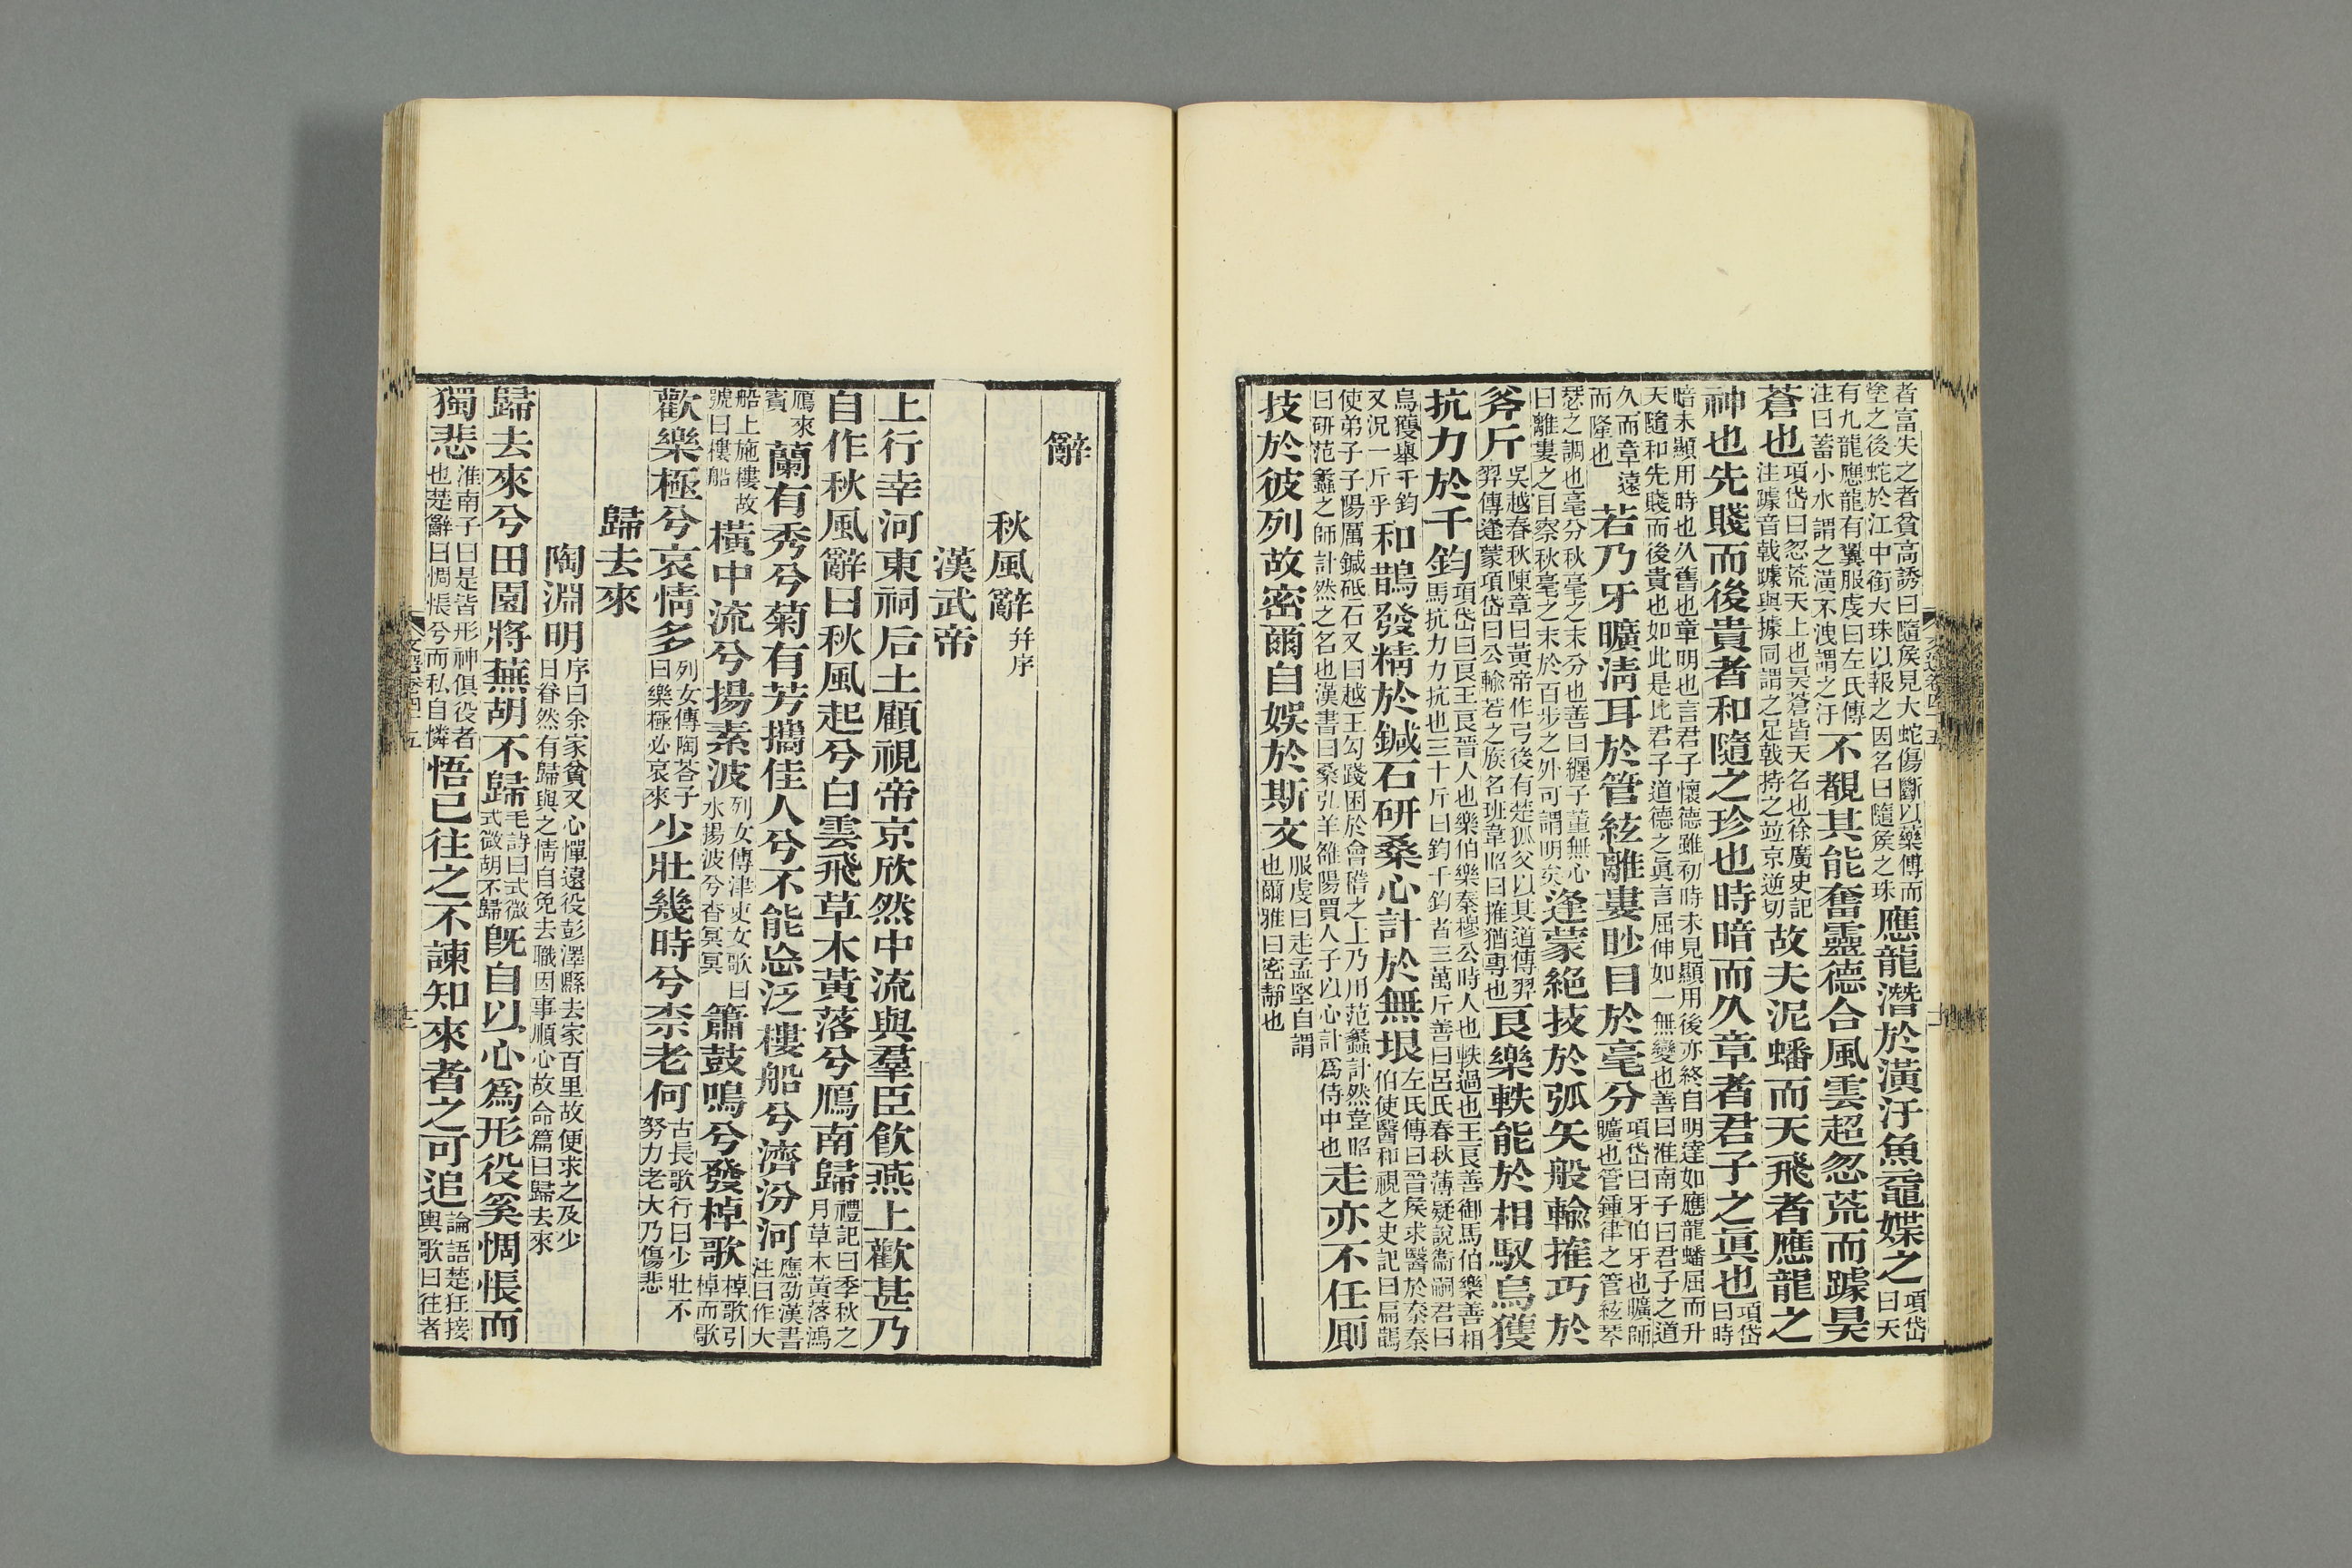 者富失之者貧高誘曰隨侯見大蛇傷斷以藥傅而塗之後蛇於江中銜大珠以報之因名曰隨侯之珠應龍潛於潢汙魚黿媟之項岱曰天
有九龍應龍有翼服虔曰左氏傳注曰蓄小水謂之潢不洩謂之汙不覩其能奮靈德合風雲超忽荒而躆昊
蒼也項岱曰忽荒天上也昊蒼皆天名也徐廣史記注躆音戟躆與據同謂之足戟持之並京逆切故夫泥蟠而天飛者應龍之
神也先賤而後貴者和隨之珍也時暗而久章者君子之眞也項岱曰時
暗未顯用時也久舊也章明也言君子懷德雖初時未見顯用後亦終自明達如應龍蟠屈而升天隨和先賤而後貴也如此是比君子道德之眞言屈伸如一無變也善曰淮南子曰君子之道
久而章遠而隆也若乃牙曠淸耳於管絃離婁眇目於毫分項岱曰牙伯牙也曠師曠也管鍾律之管絃琴
瑟之調也毫分秋毫之末分也善曰纏子董無心曰離婁之目察秋毫之末於百步之外可謂明矣逢蒙絕技於弧矢般輸搉巧於
斧斤吳越春秋陳章曰黃帝作弓後有楚狐父以其道傳羿羿傳逢蒙項岱曰公輸若之族名班韋昭曰搉猶專也良樂軼能於相馭烏獲
抗力於千鈞項岱曰良王良晉人也樂伯樂秦穆公時人也軼過也王良善御馬伯樂善相馬抗力力抗也三十斤曰鈞千鈞者三萬斤善曰呂氏春秋薄疑說衞嗣君曰
烏獲舉千鈞又況一斤乎和鵲發精於鍼石研桑心計於無垠左氏傳曰晉侯求醫於秦秦伯使醫和視之史記曰扁鵲
使弟子子陽厲鍼砥石又曰越王勾踐困於會稽之上乃用范蠡計然韋昭曰研范蠡之師計然之名也漢書曰桑弘羊雒陽賈人子以心計爲侍中也走亦不任厠
技於彼列故密爾自娛於斯文服虔曰走孟堅自謂也爾雅曰密靜也
辭
秋風辭幷序
漢武帝
上行幸河東祠后土顧視帝京欣然中流與羣臣飮燕上歡甚乃
自作秋風辭曰秋風起兮白雲飛草木黃落兮鴈南歸禮記曰季秋之月草木黃落鴻
鴈來賓蘭有秀兮菊有芳攜佳人兮不能忘泛樓船兮濟汾河應劭漢書注曰作大
船上施樓故號曰樓船橫中流兮揚素波列女傳津吏女歌曰水揚波兮杳冥冥簫鼓鳴兮發棹歌棹歌引棹而歌
歡樂極兮哀情多列女傳陶荅子曰樂極必哀來少壯幾時兮柰老何古長歌行曰少壯不努力老大乃傷悲
歸去來
陶淵明序曰余家貧又心憚遠役彭澤縣去家百里故便求之及少日眷然有歸與之情自免去職因事順心故命篇曰歸去來
歸去來兮田園將蕪胡不歸毛詩曰式微式微胡不歸旣自以心爲形役奚惆悵而
獨悲淮南子曰是皆形神俱役者也楚辭曰惆悵兮而私自憐悟已往之不諫知來者之可追論語楚狂接輿歌曰往者